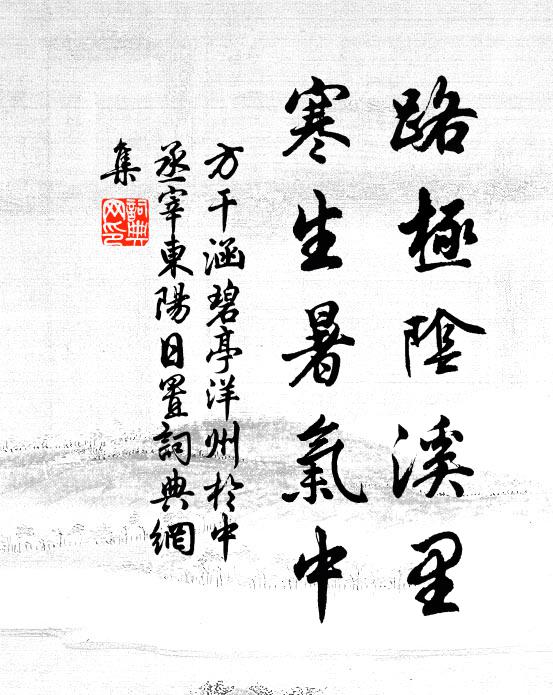 路極陰溪里
寒生暑氣中
方干涵碧亭洋州於中
丞宰東陽日置詞典網
集
詞典網印